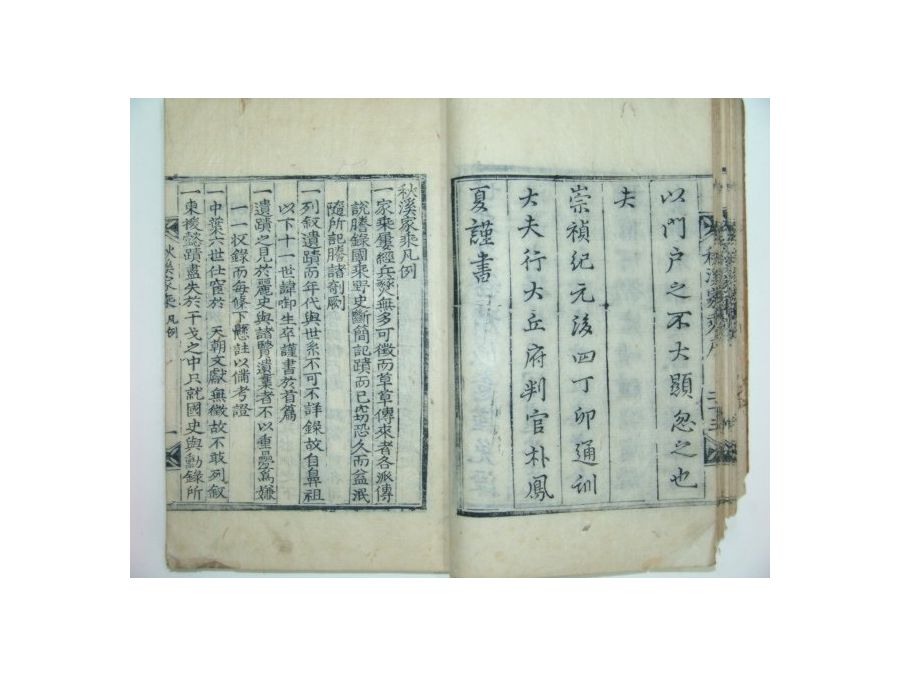 以門戶之不大顯忽之也
夫
崇禎紀元後四丁卯通訓
大夫行大丘府判官朴鳳
夏謹書
秋溪家乘凡例
一家乘屢經兵燹無多可徵而草草傳來者各派傳
說謄錄國乘野史斷簡記蹟而已窃恐久而益泯
隨所記謄諸剞劂
一列叙遺蹟而年代與世系不可不詳錄故自鼻祖
以下十一世諱啣生卒謹書於首篇
一遺蹟之見於麗史與諸賢遺藁者不以重疊爲嫌
一一収錄而每條下懸註以備考證
一中葉六世仕宦於 天朝文獻無徵故不敢列叙
一東援懿蹟盡失於干戈之中只就國史與勳錄所
秋溪家乘 凡例 一